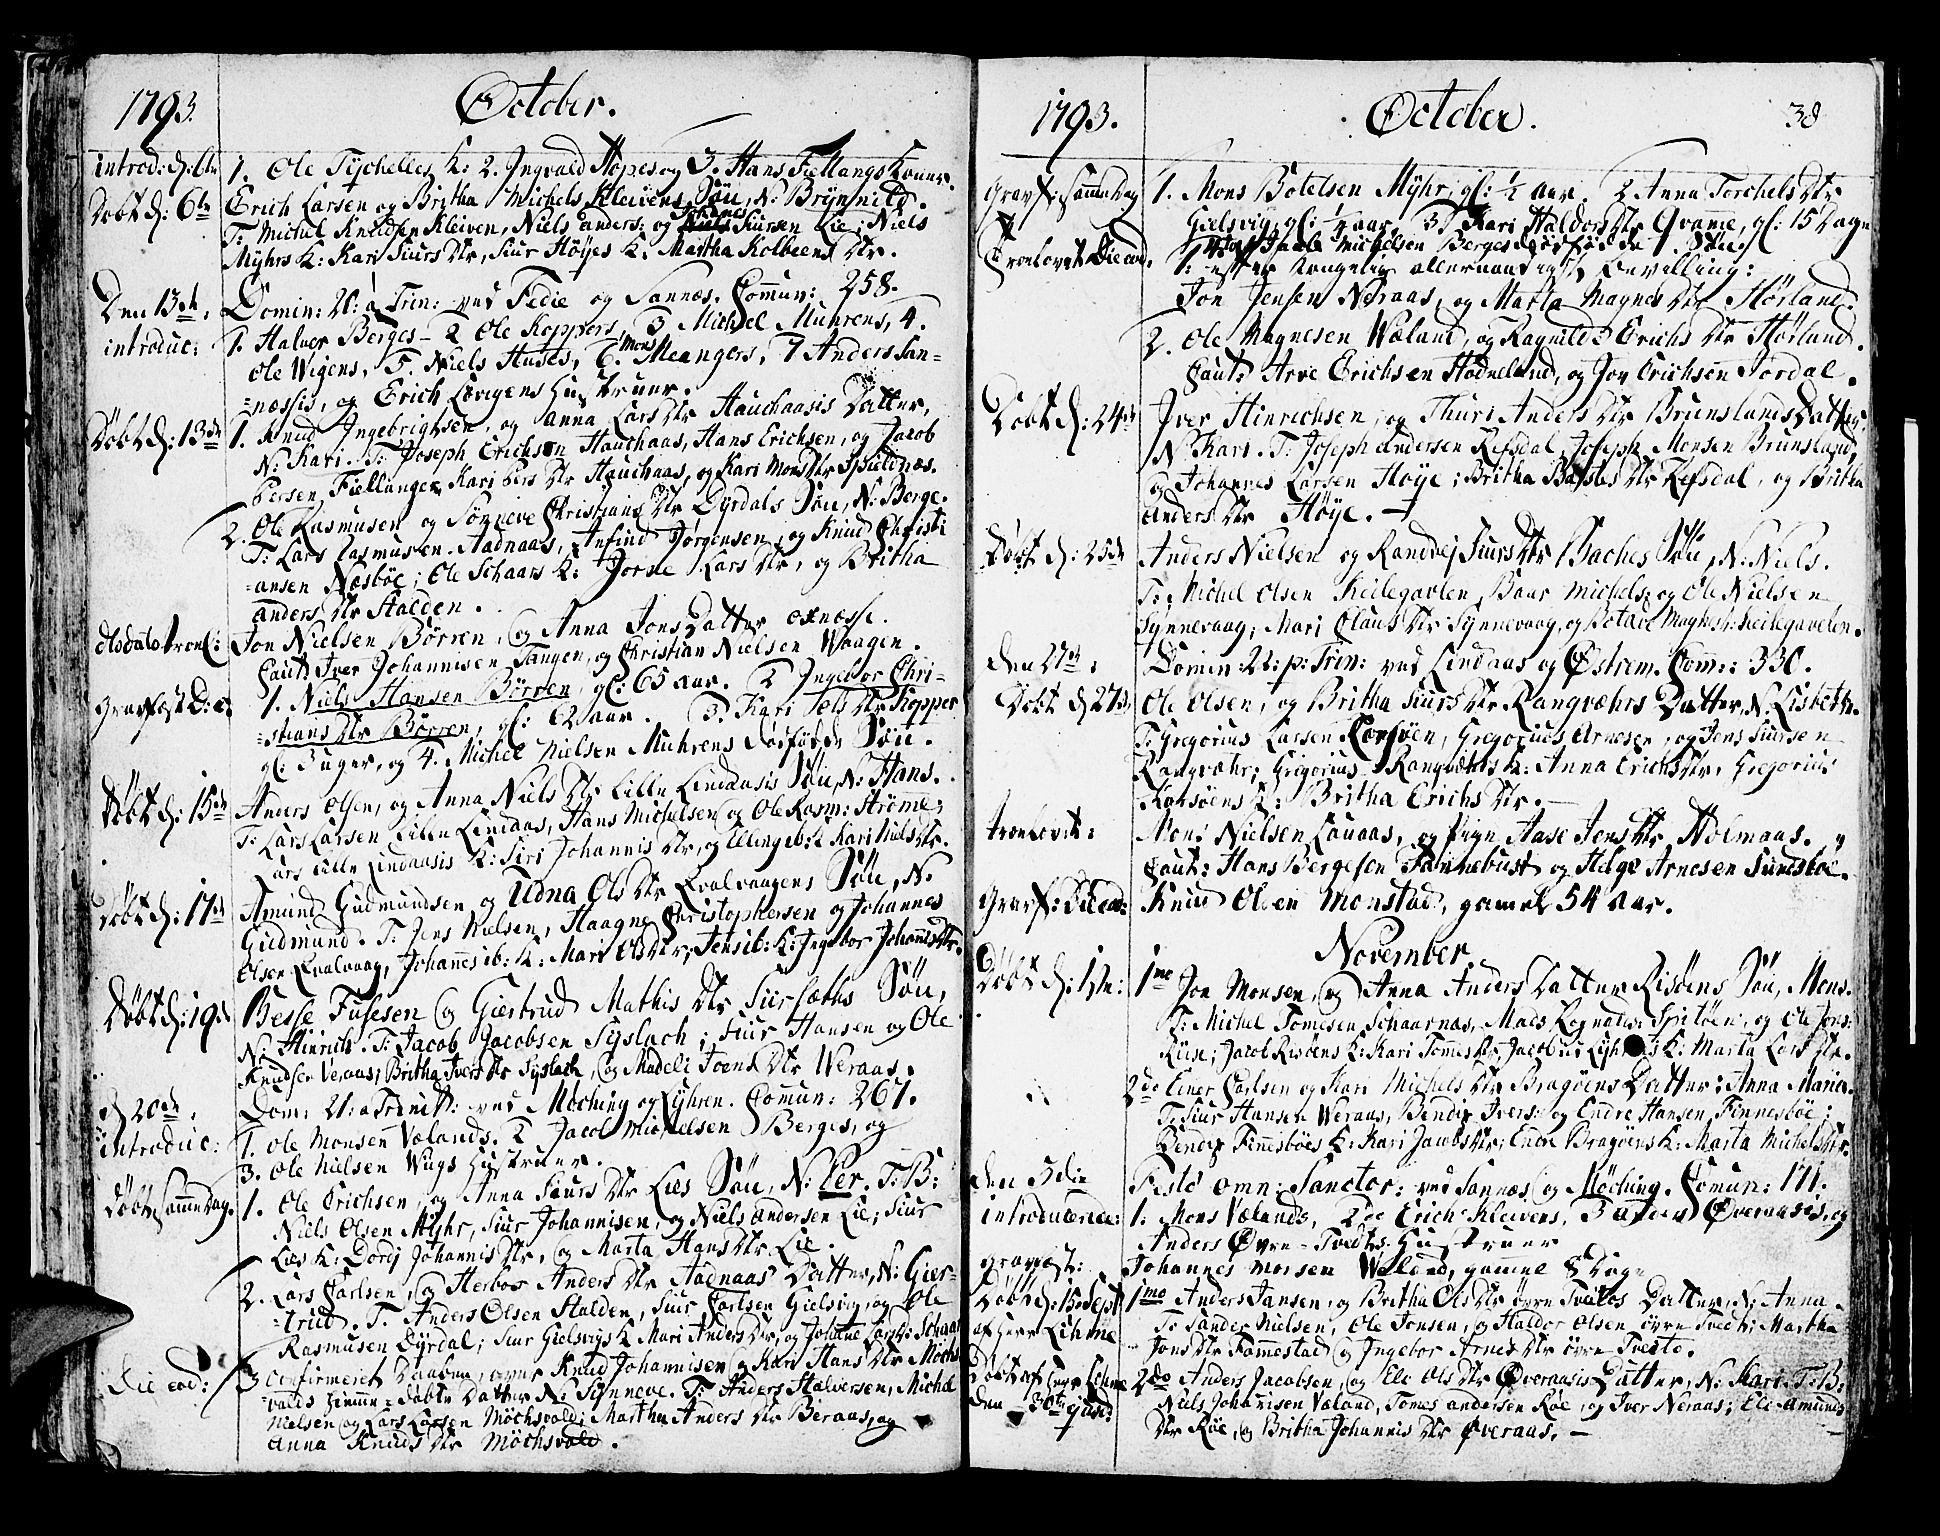 1793. October.
introd: d: 6te 1. Ole Tychelles K: 2. Ingvald Hopes og 3. Hans Fiellangs Koner.
Döbt d: 6te Erich Larsen og Britha Michels Kleivens Söu, N: Brynnild.
T: Michel Knudsen Kleiven, Niels anders: og Johannes Siursen Lie; Niels
Myhrs K: Kari Siurs Dtr, Siur Höyes K: Martha Kolbeens Dtr.
Den 13de, Domin: 20: a Trin: ved Fedie og Sannæs. Comun: 258.
introduc: 1. Halvor Berges - 2 Ole Koppers, 3 Michel Muhrens, 4.
Ole Wigens, 5. Niels Huses, 6. Mons Meangers, 7 Anders San-
=næssis, og Erich Lövigens Hustruer.
Döbt d: 13de 1. Knud Ingebrigtsen, og Anna Lars Dtr Hauchaasis Datter,
N: Kari. T: Joseph Erichsen Hauchaas, Hans Erichsen, og Jacob
Persen Fiellanger, Kari Pers Dtr Hauchaas, og Kari Mons Dtr Spieldnæs.
2. Ole Rasmusen og Sönneve Christians Dtr Dyrdals Söu, N: Berge.
T: Lars Rasmusen Aadnaas, Anfind Jörgensen, og Knud Christi
=ansen Næsböe; Ole Schaars K: Jorne Lars Dtr, og Britha
Anders Dtr Stalden.
Alsdals trool: Jon Nielsen Börren, og Anna Jons Datter Oxnæsse.
Caut: Iver Johannisen Tangen, og Christian Nielsen Waagen.
Gravfæst D: e: 1. Niels Hansen Börren, gl: 65 aar. 2 Ingebor Chri-
=stians Dtr Börren, gl: 62 aar. 3. Kari Jels Dtr Kopper
gl: 3 uger, og 4. Michel Nielsen Muhrens Dödföde Söu.
Döbt d: 15de Anders Olsen, og Anna Niels Dtr Lille Lindaasis Söu, N: Hans.
T: Lars Larsen Lille Lindaas, Hans Michelsen og Ole Rasm: Ströme;
Lars Lille Lindaasis K: Siri Johannis Dtr, og Elling ib: K Kari Niels Dtr.
Döbt d: 17de Amund Gudmundsen og Udna Ols Dtr Qvalvaagens Söu, N.
Gudmund. T: Jens Nielsen, Haagne Christophersen og Johannes
Olsen Qvalvaag, Johannes ib: K: Mari Ols Dtr; Jens ib: K: Ingebor Johannis Dtr.
Döbt d: 19de Besse Fusesen og Giertrud Mathis Dtr Siursæths Söu,
N: Hinrich. T: Jacob Jacobsen Syslach; Siur Hansen og Ole
Knudsen Veraas; Britha Ivers Dtr Syslach, og Madeli Joens Dtr Weraas.
d: 20de, Dom: 21: a Trinit: ved Möching og Lyhren. Comun: 267.
introduc: 1. Ole Monsen Vælands. 2 Jacob Michelsen Berges, og
3. Ole Nielsen Wugs Hustruer.
Döbt Samme Dag. 1. Ole Erichsen, og Anna Siurs Dtr Lies Söu, N: Per. T: B:
Niels Olsen Myhr, Siur Johannisen, og Niels Andersen Lie; Siur
Lies K: Dordj Johannis Dtr, og Marta Hans Dtr Lie.
2. Lars Carlsen, og Herbor Anders Dtr Aadnaas Datter, N: Gier-
=trud. T: Anders Olsen Stalden, Siur Carlsen Gielsvig, og Ole
Rasmusen Dyrdal; Siur Gielsvigs K Mari Anders Dtr, og Johane Lars Schaar
Die eod: 3 confirmeret Daaben over Knud Johannisen og Kari Hans Dtr Möchs
=valds Hiemme-Döbte Datter N: Synneve. T: Anders Halversen, Michel
Nielsen og Lars Larsen Möchsvold; Martha Anders Dtr Beraas, og
Anna Knuds Dtr Möchsvold.
1793. October. 38
Gravf: Samme Dag 1. Mons Botelsen Myhr, gl: 1/2 aar. 2 Anna Torchels Dtr
Gielsvig, gl: 1/4 aar. 3. Kari Haldors Dtr Qvamme, gl: 15 Dage
4. Jacob Michelsen Berges dödfödde Söu.
Troelovet Die eod. 1: efter Kongelig allernaadigst Bevilling:
Jon Jensen Neraas, og Marta Magnes Dtr Hörland.
2. Ole Magnesen Wæland, og Ragnild Erichs Dtr Hörland.
Caut: Arve Erichsen Hodneland, og Joy Erichsen Jordal.
Döbt d: 24de Iver Hinrichsen, og Thuri Anders Dtr Brunslands Datter,
N: Kari. T: Joseph Andersen Refsdal, Joseph Monsen Brunsland,
og Johannes Larsen Höye; Britha Baltes Dtr Refsdal, og Britha
Anders Dtr Höye.
Döbt d: 25de Anders Nielsen og Randvej Siurs Dtr Baches Söu, N: Niels.
T: Michel Olsen Keilegavlen, Baar Michels: og Ole Nielsen
Synnevaag; Mari Claus Dtr Synnevaag, og Botave Magnes: Keilegavelen.
Den 27de, Domin: 22: p: Trin: ved Lindaas og Östrem. Comm: 330.
Döbt d 27de, Ole Olsen, og Britha Siurs Dtr Rangvæhrs Datter, N. Lisbeth.
T. Gregorius Larsen Korsöen, Gregorius Arnesen, og Jens Siursen
Rangvæhr; Grigorius Rangvæhrs K: Anna Erichs Dtr, Gregorius
Korsöens K: Britha Erichs Dtr.
Troelovet: Mons Nielsen Lauaas, og Pign Aase Jens Dtr Holmaas.
Caut: Hans Bergesen Fannebust og Helge Arnesen Sundsböe.
Gravf: Die eod: Knud Olsen Monstad, gamel 54 aar.
November.
Döbt d: 1ste: 1mo Jon Monsen, og Anna Anders Datter Risöens Söu, Mons.
T: Michel Tomesen Schaarnas, Mads Rognalds: Spitöen, og Ole Jons:
Riise; Jacob Risöens K: Kari Tomes Dtr, Jacobus K: Marta Lars Dtr.
2do Einer Carlsen og Kari Michels Dtr Bragöens Datter: Anna Maria.
T: Siur Hansen Weraas, Bendix Ivers: og Endre Hansen, Finnesböe;
Bendix Finnesböes K: Kari Jacobs Dtr; Endre Bragöens K: Marta Michels Dtr.
Den 3die Festo Omn: Sanctor: ved Sannæs og Möching. Comun: 171.
introducerede: 1. Mons Vælands, 2do Erich Kleivens, 3 Anders Överaasis, og
Anders Övre-Tvedtes Hustruer
Gravfæst: Johannes Monsen Wæland, gamel 8 Dage
Döbt d: 15 Sept af Herr Lihme 1mo Anders Jansen, og Britha Ols Dtr övre Tveitos Datter, N: Anna.
T: Sander Nielsen, Ole Jensen, og Haldor Olsen övre Tvedt; Martha
Jons Dtr Fammestad og Ingebor Arnes Dtr övre Tvedte.
Döbt af Herr Lihme den 30te Junii 2do Anders Jacobsen, og Ele Ols Dtr Överaasis Datter, N: Kari. T: B:
Niels Johannisen Væland, Tomes Andersen Röe, og Iver Neraas; Ele Amunds
Dtr Röe, og Britha Johannis Dtr Överaas.